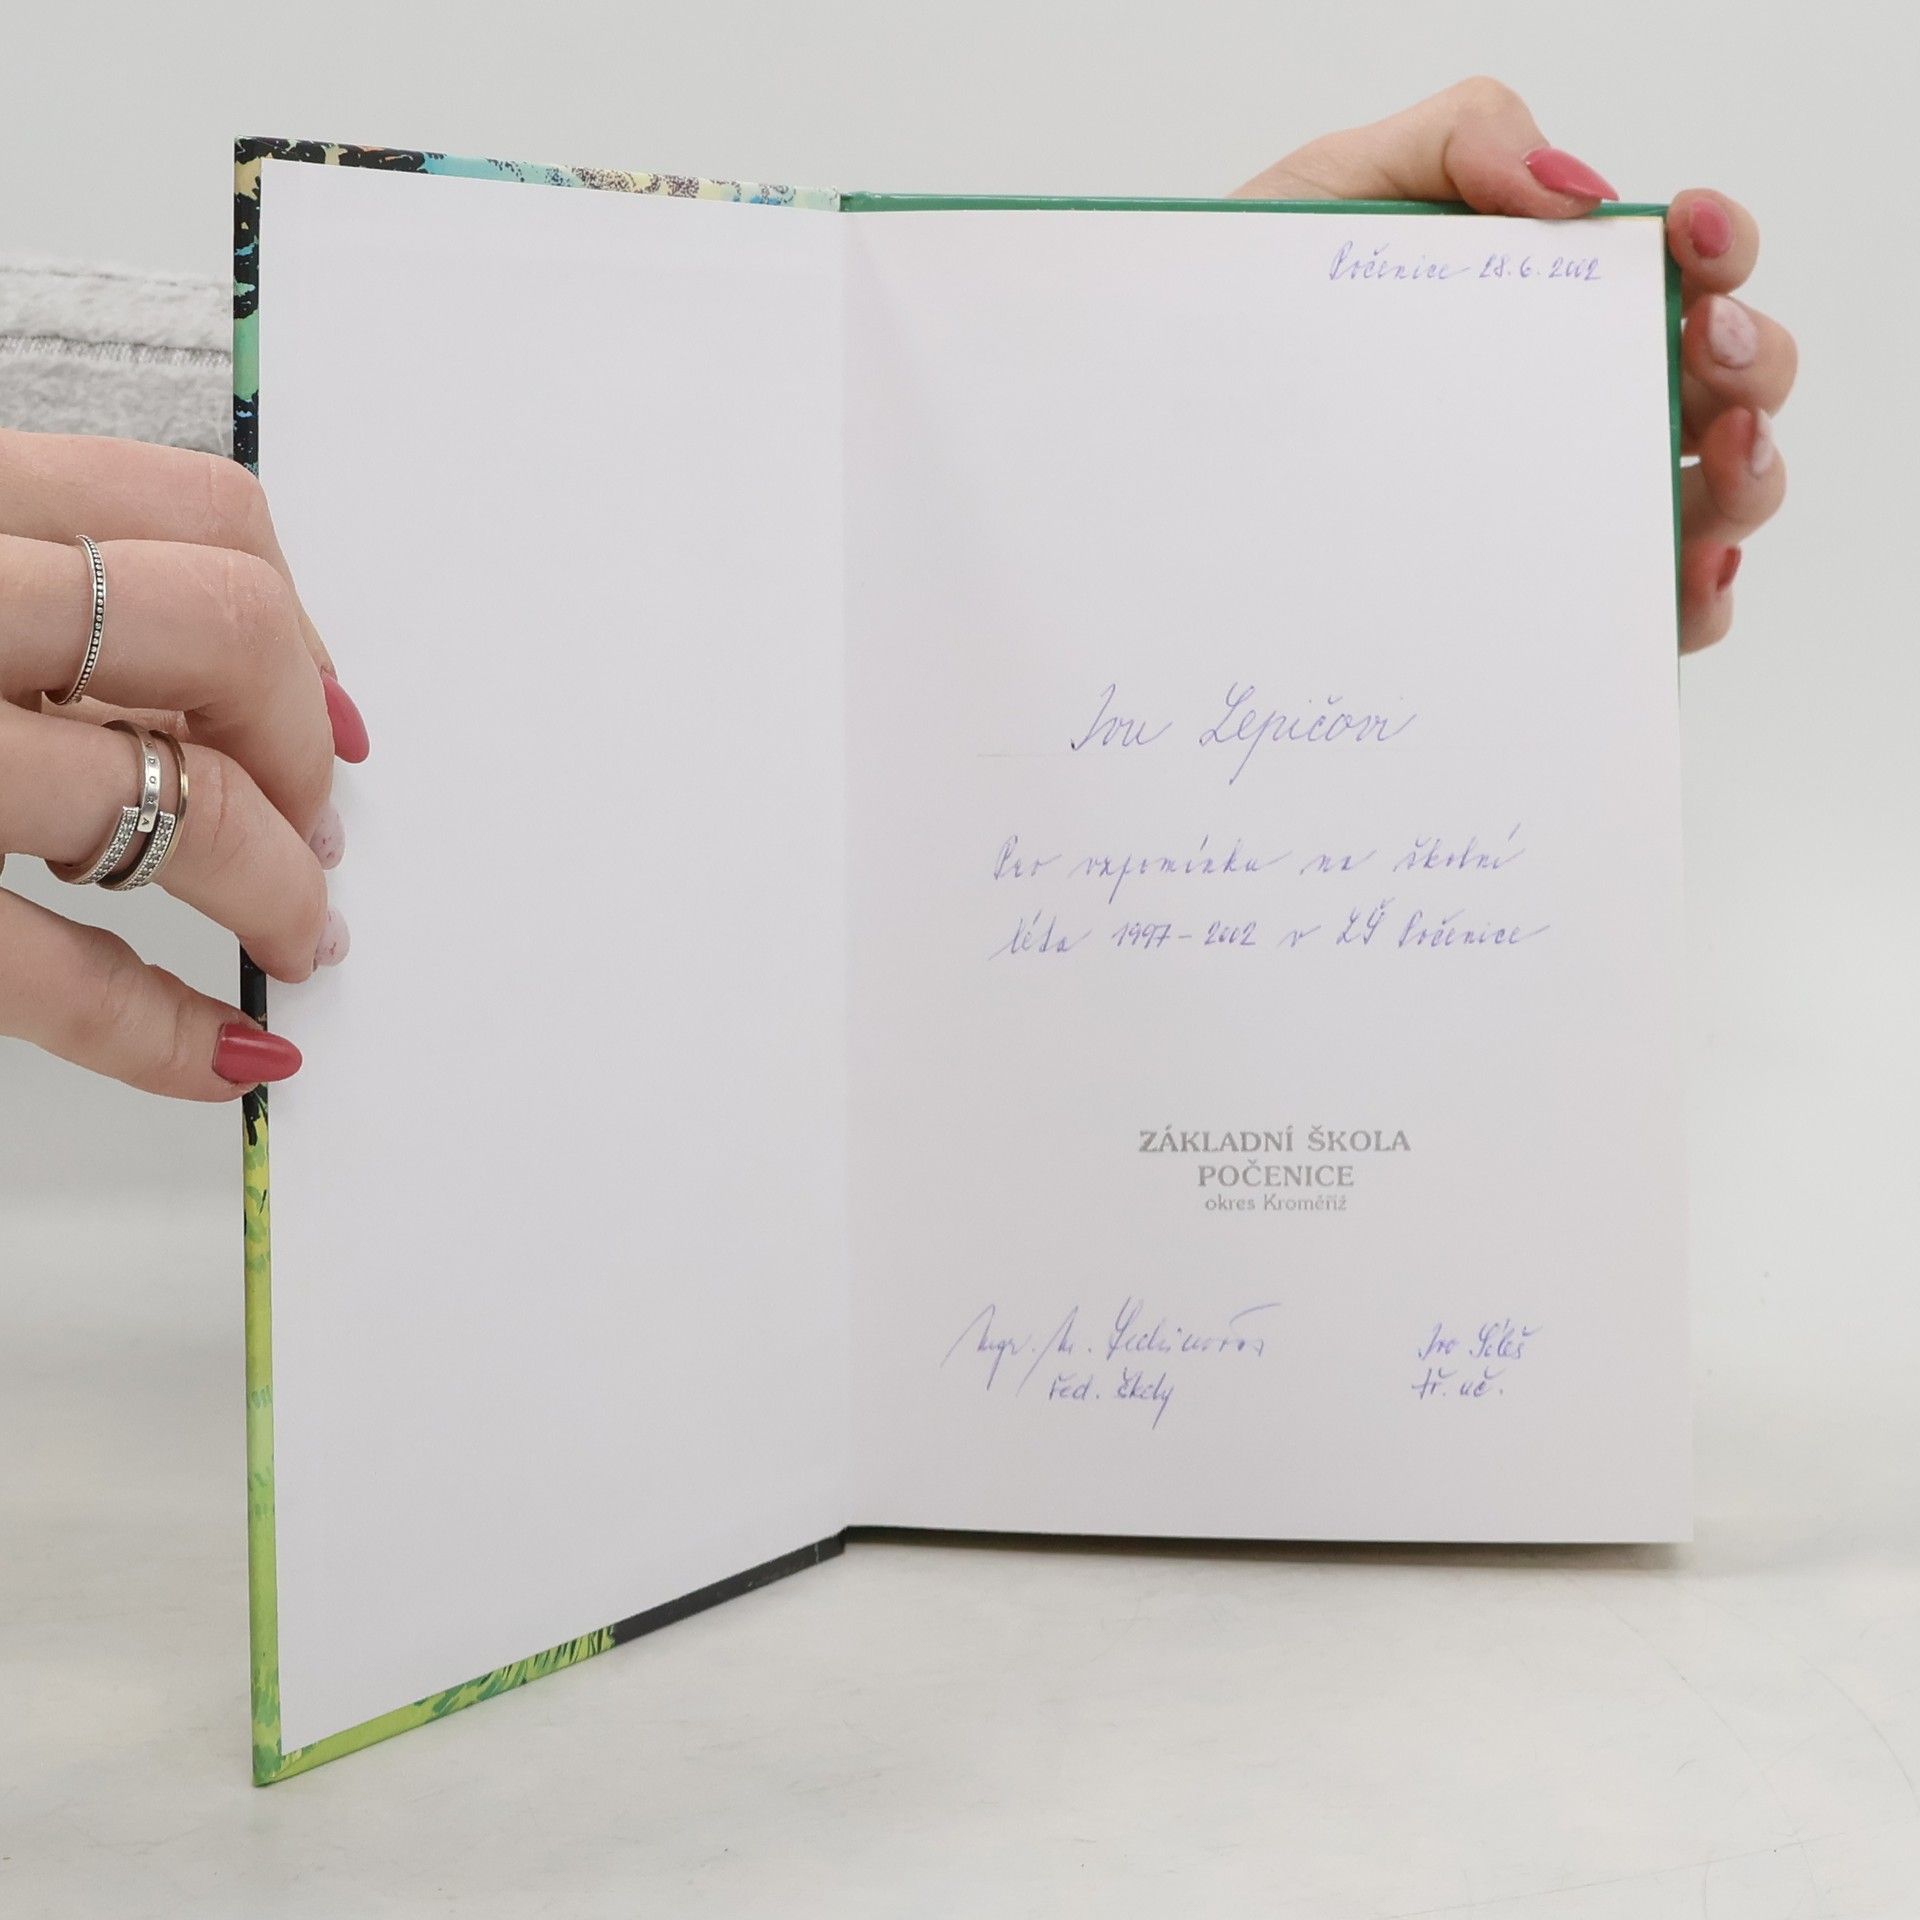 Počenice 28.6.2002
Ivu Lepičovi
Pro vzpomínku na školní
léta 1997-2002 v ZŠ Počenice
ZÁKLADNÍ ŠKOLA
POČENICE
okres Kroměříž
Mgr. M.
Ivo
řed. školy
tř. uč.
PANDORA